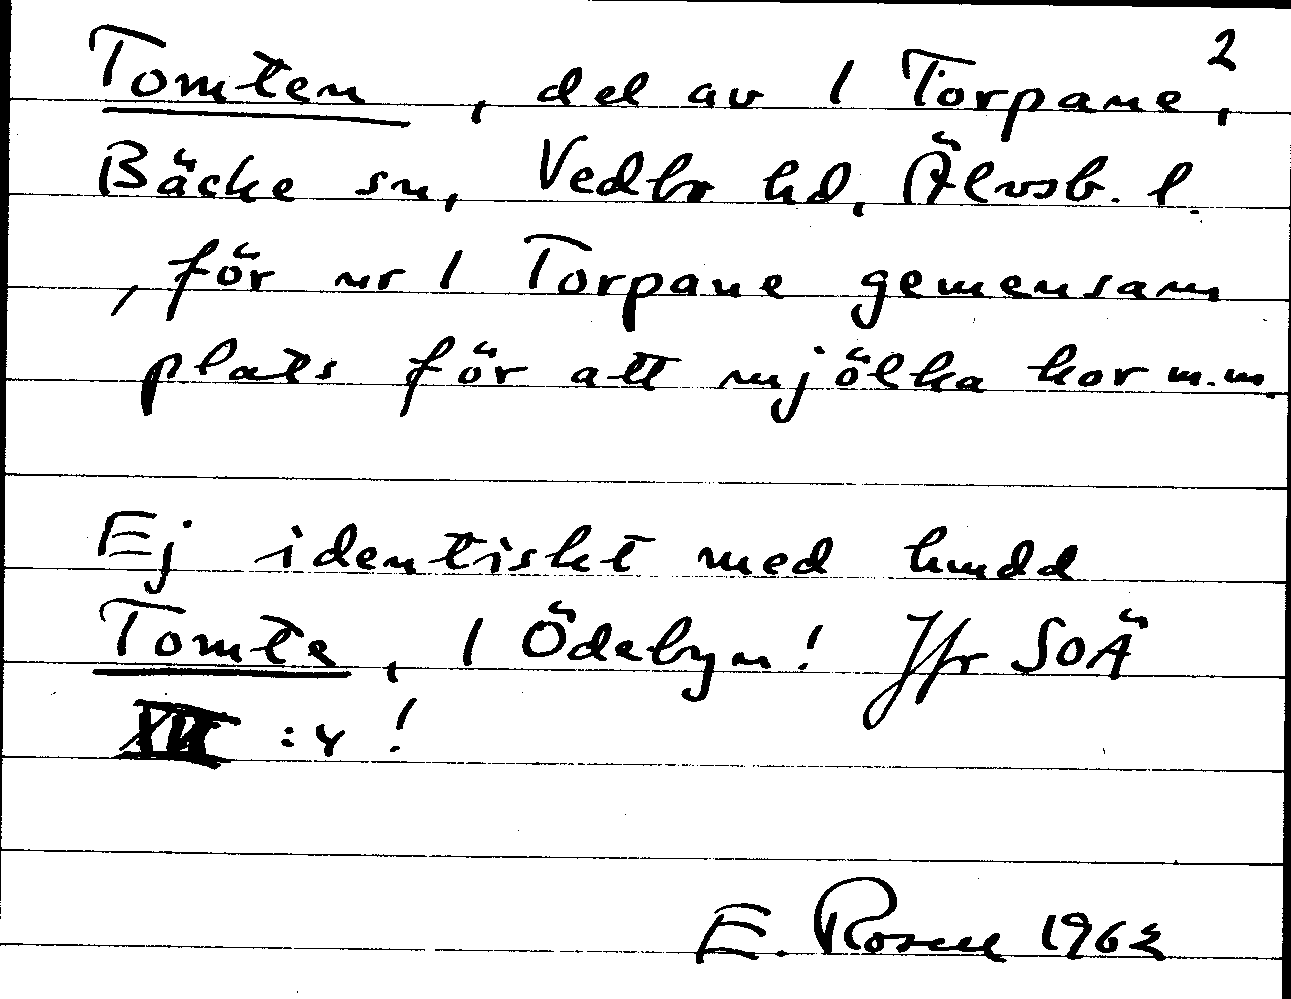 2
Tomten, del av 1 Torpane,
Bäcke sn, Vedbo hd, Älvsb. l.
, för nr 1 Torpane gemensam
plats för att mjölka kor m.m.
Ej identiskt med hmdd
Tomte, 1 Ödebyn! Jfr SOÄ
XVII :4 !
E. Rosell 1962